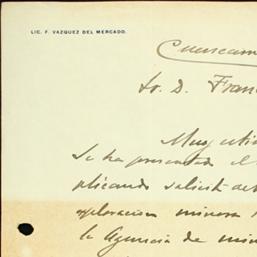 LIC. F. VAZQUEZ DEL MERCADO.
Sr. D. Fran
Muy
Se ha presentado el
plicando solicit
exploracion minera
la Agencia de min